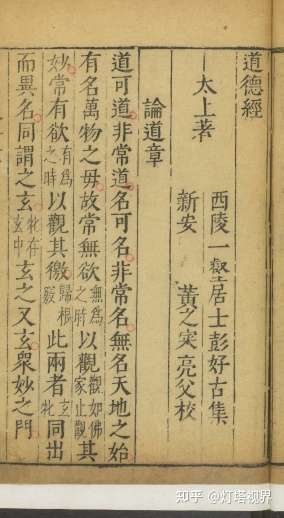 道德經
太上著
西陵一壑居士彭好古集
新安 黃之寀亮父校
論道章
道可道非常道名可名非常名無名天地之始
有名萬物之毋故常無欲無爲之時以觀觀如佛家止觀其
妙常有欲有爲之時以觀其徼歸根竅此兩者玄牝同出
而異名同謂之玄牝存玄中玄之又玄衆妙之門
知乎 @灯塔视界